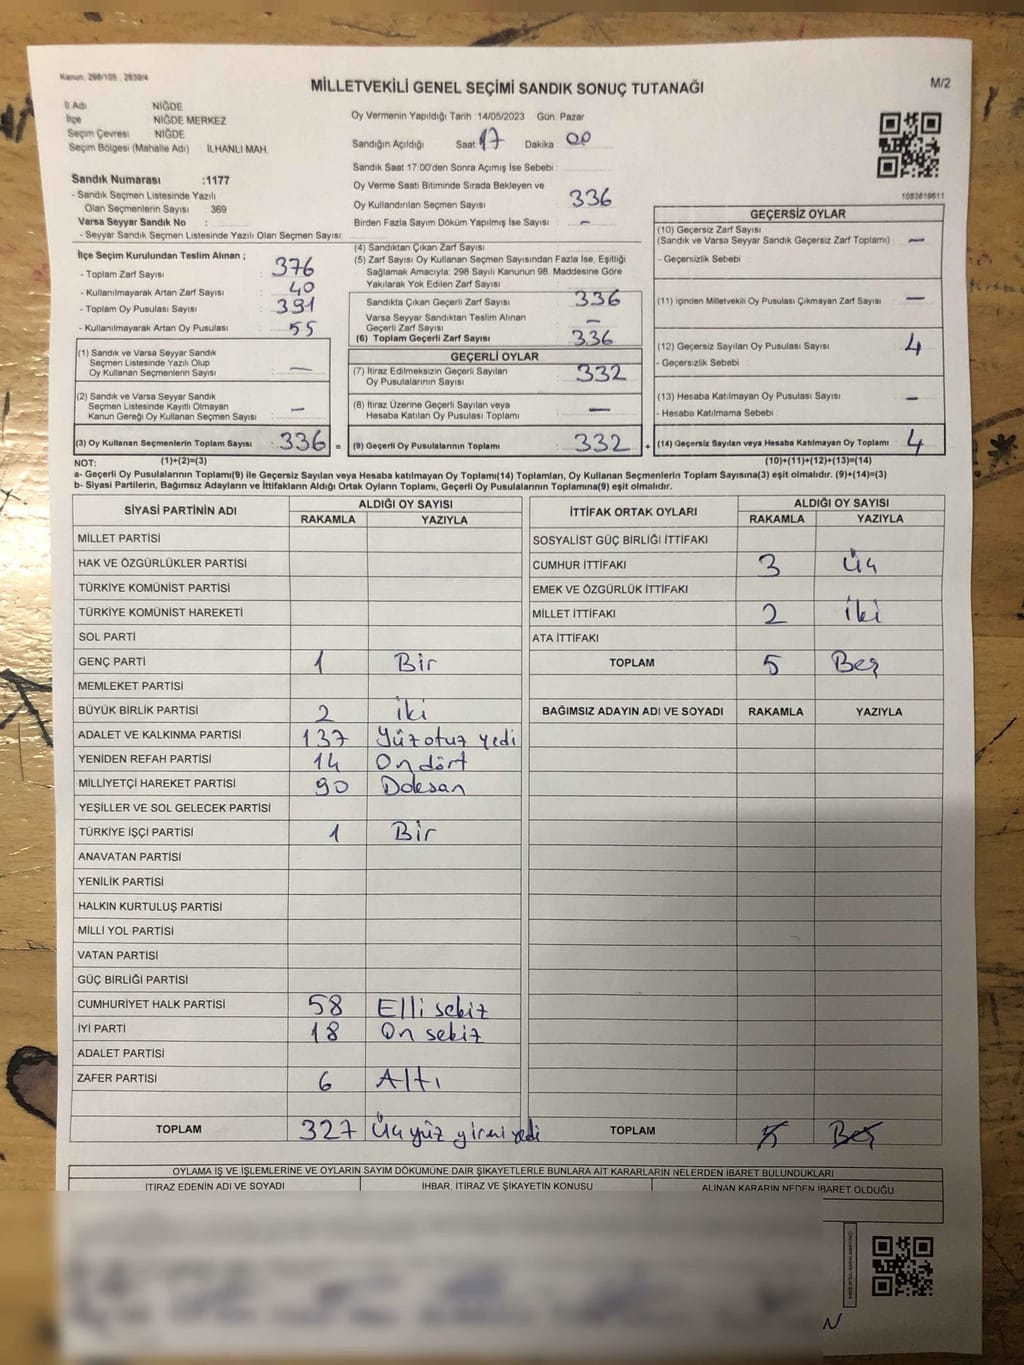 Kanun: 298/105 , 2839/4
MİLLETVEKİLİ GENEL SEÇİMİ SANDIK SONUÇ TUTANAĞI
M/2
İl Adı NİĞDE
İlçe NİĞDE MERKEZ
Seçim Çevresi NİĞDE
Seçim Bölgesi (Mahalle Adı) İLHANLI MAH.
Oy Vermenin Yapıldığı Tarih :14/05/2023 Gün: Pazar
Sandığın Açıldığı Saat 17 Dakika 00
Sandık Saat 17:00'den Sonra Açılmış İse Sebebi :
Sandık Numarası :1177
- Sandık Seçmen Listesinde Yazılı
Olan Seçmenlerin Sayısı : 369
Varsa Seyyar Sandık No :
- Seyyar Sandık Seçmen Listesinde Yazılı Olan Seçmen Sayısı:
Oy Verme Saati Bitiminde Sırada Bekleyen ve
Oy Kullandırılan Seçmen Sayısı : 336
Birden Fazla Sayım Döküm Yapılmış İse Sayısı : -
1083819611
İlçe Seçim Kurulundan Teslim Alınan ;
- Toplam Zarf Sayısı : 376
- Kullanılmayarak Artan Zarf Sayısı : 40
- Toplam Oy Pusulası Sayısı : 391
- Kullanılmayarak Artan Oy Pusulası : 55
(1) Sandık ve Varsa Seyyar Sandık
Seçmen Listesinde Yazılı Olup
Oy Kullanan Seçmenlerin Sayısı : -
(2) Sandık ve Varsa Seyyar Sandık
Seçmen Listesinde Kayıtlı Olmayan
Kanun Gereği Oy Kullanan Seçmen Sayısı : -
(3) Oy Kullanan Seçmenlerin Toplam Sayısı : 336 =
(1)+(2)=(3)
(4) Sandıktan Çıkan Zarf Sayısı :
(5) Zarf Sayısı Oy Kullanan Seçmen Sayısından Fazla İse, Eşitliği
Sağlamak Amacıyla; 298 Sayılı Kanunun 98. Maddesine Göre
Yakılarak Yok Edilen Zarf Sayısı :
Sandıkta Çıkan Geçerli Zarf Sayısı : 336
Varsa Seyyar Sandıktan Teslim Alınan
Geçerli Zarf Sayısı : -
(6) Toplam Geçerli Zarf Sayısı : 336
GEÇERLİ OYLAR
(7) İtiraz Edilmeksizin Geçerli Sayılan
Oy Pusulalarının Sayısı : 332
(8) İtiraz Üzerine Geçerli Sayılan veya
Hesaba Katılan Oy Pusulası Toplamı : -
(9) Geçerli Oy Pusulalarının Toplamı : 332 +
GEÇERSİZ OYLAR
(10) Geçersiz Zarf Sayısı
(Sandık ve Varsa Seyyar Sandık Geçersiz Zarf Toplamı) : -
- Geçersizlik Sebebi :
(11) İçinden Milletvekili Oy Pusulası Çıkmayan Zarf Sayısı : -
(12) Geçersiz Sayılan Oy Pusulası Sayısı : 4
- Geçersizlik Sebebi :
(13) Hesaba Katılmayan Oy Pusulası Sayısı : -
- Hesaba Katılmama Sebebi :
(14) Geçersiz Sayılan veya Hesaba Katılmayan Oy Toplamı : 4
(10)+(11)+(12)+(13)=(14)
NOT:
a- Geçerli Oy Pusulalarının Toplamı(9) ile Geçersiz Sayılan veya Hesaba katılmayan Oy Toplamı(14) Toplamları, Oy Kullanan Seçmenlerin Toplam Sayısına(3) eşit olmalıdır. (9)+(14)=(3)
b- Siyasi Partilerin, Bağımsız Adayların ve İttifakların Aldığı Ortak Oyların Toplamı, Geçerli Oy Pusulalarının Toplamına(9) eşit olmalıdır.
SİYASİ PARTİNİN ADI ALDIĞI OY SAYISI
RAKAMLA YAZIYLA
MİLLET PARTİSİ
HAK VE ÖZGÜRLÜKLER PARTİSİ
TÜRKİYE KOMÜNİST PARTİSİ
TÜRKİYE KOMÜNİST HAREKETİ
SOL PARTİ
GENÇ PARTİ 1 Bir
MEMLEKET PARTİSİ
BÜYÜK BİRLİK PARTİSİ 2 iki
ADALET VE KALKINMA PARTİSİ 137 Yüz otuz yedi
YENİDEN REFAH PARTİSİ 14 On dört
MİLLİYETÇİ HAREKET PARTİSİ 90 Doksan
YEŞİLLER VE SOL GELECEK PARTİSİ
TÜRKİYE İŞÇİ PARTİSİ 1 Bir
ANAVATAN PARTİSİ
YENİLİK PARTİSİ
HALKIN KURTULUŞ PARTİSİ
MİLLİ YOL PARTİSİ
VATAN PARTİSİ
GÜÇ BİRLİĞİ PARTİSİ
CUMHURİYET HALK PARTİSİ 58 Elli sekiz
İYİ PARTİ 18 On sekiz
ADALET PARTİSİ
ZAFER PARTİSİ 6 Altı
TOPLAM 327 Üç yüz yirmi yedi
İTTİFAK ORTAK OYLARI ALDIĞI OY SAYISI
RAKAMLA YAZIYLA
SOSYALİST GÜÇ BİRLİĞİ İTTİFAKI
CUMHUR İTTİFAKI 3 Üç
EMEK VE ÖZGÜRLÜK İTTİFAKI
MİLLET İTTİFAKI 2 İki
ATA İTTİFAKI
TOPLAM 5 Beş
BAĞIMSIZ ADAYIN ADI VE SOYADI RAKAMLA YAZIYLA
TOPLAM 5 Beş
OYLAMA İŞ VE İŞLEMLERİNE VE OYLARIN SAYIM DÖKÜMÜNE DAİR ŞİKAYETLERLE BUNLARA AİT KARARLARIN NELERDEN İBARET BULUNDUKLARI
İTİRAZ EDENİN ADI VE SOYADI İHBAR, İTİRAZ VE ŞİKAYETİN KONUSU ALINAN KARARIN NEDEN İBARET OLDUĞU